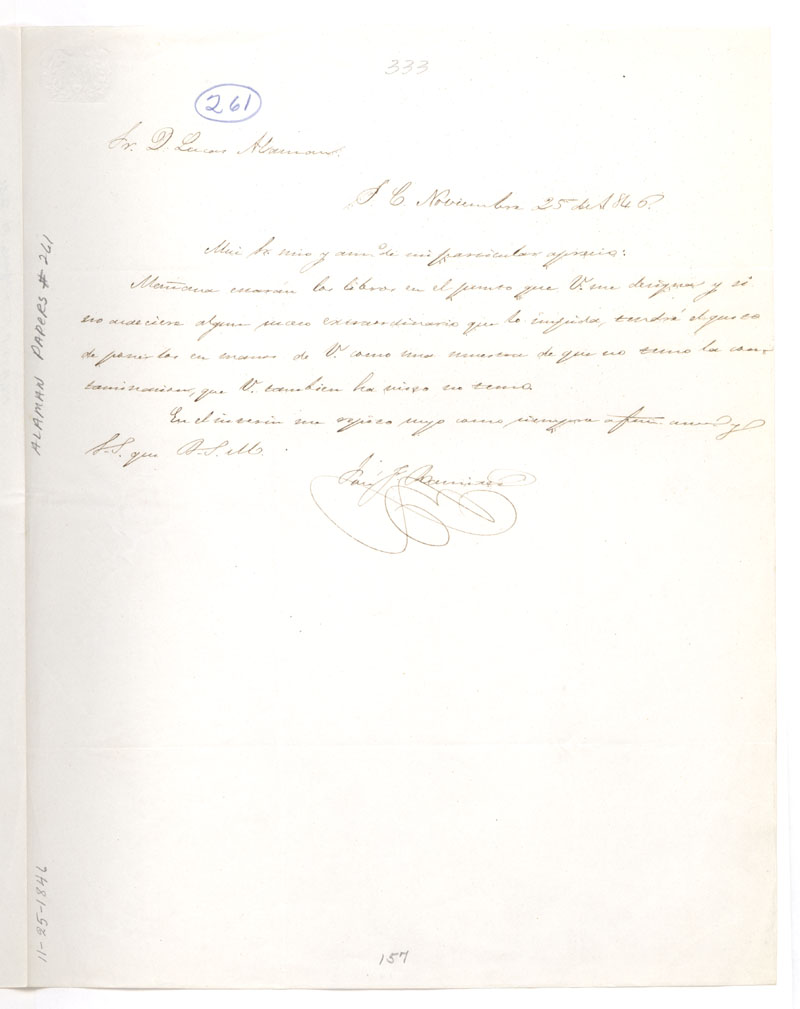 333
261
Sr. D. Lucas Alaman.
S. C. Noviembre 25 de 1846.
Mui Sr. mio y am.º de mi particular aprecio:
Mañana estarán los libros en el punto que V. me designa, y si
no acaeciere algun caso extraordinario que lo impida, tendré el gusto
de ponerlos en manos de V. como una muestra de que no temo la con-
taminacion, que V. tambien ha visto no teme.
En el interin me repito suyo como siempre afmo. amº y
S. S. que B. S. M.
José F. Ramirez
ALAMAN PAPERS # 261
11-25-1846
157